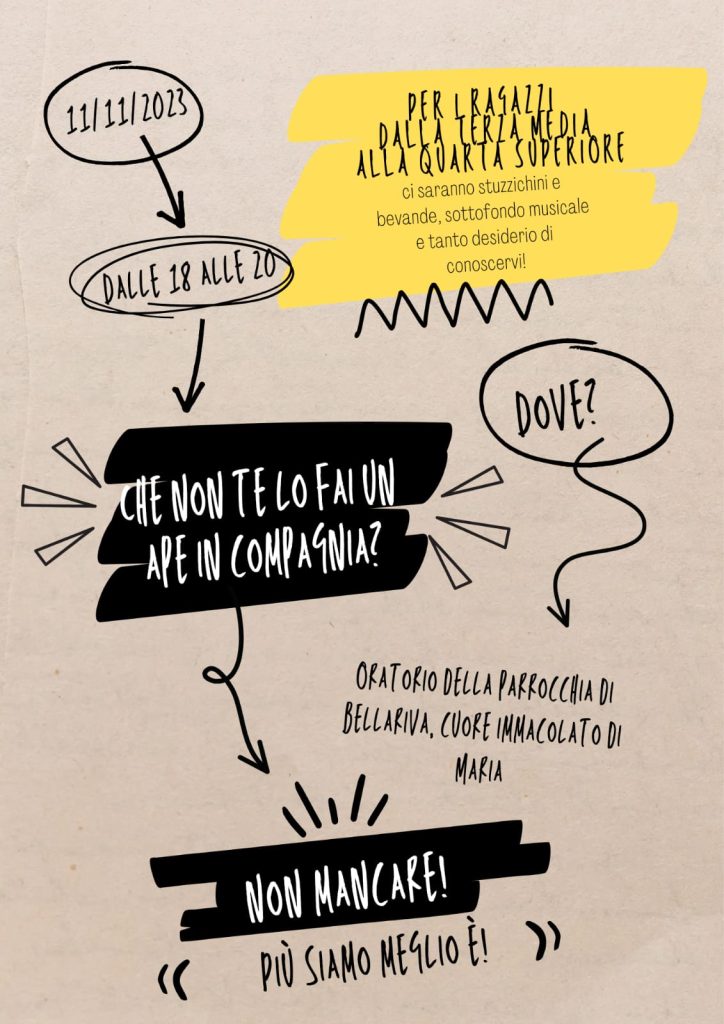 11/11/2023
PER I RAGAZZI
DALLA TERZA MEDIA
ALLA QUARTA SUPERIORE
ci saranno stuzzichini e
bevande, sottofondo musicale
e tanto desiderio di
conoscervi!
DALLE 18 ALLE 20
DOVE?
CHE NON TE LO FAI UN
APE IN COMPAGNIA?
ORATORIO DELLA PARROCCHIA DI
BELLARIVA, CUORE IMMACOLATO DI
MARIA
NON MANCARE!
PIÙ SIAMO MEGLIO È!